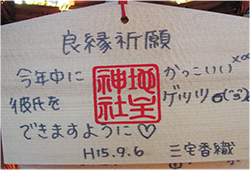 良縁祈願
今年中に かっこいい
彼氏を ゲッツ
できますように♡
地主神社
H15.9.6 三宅香織